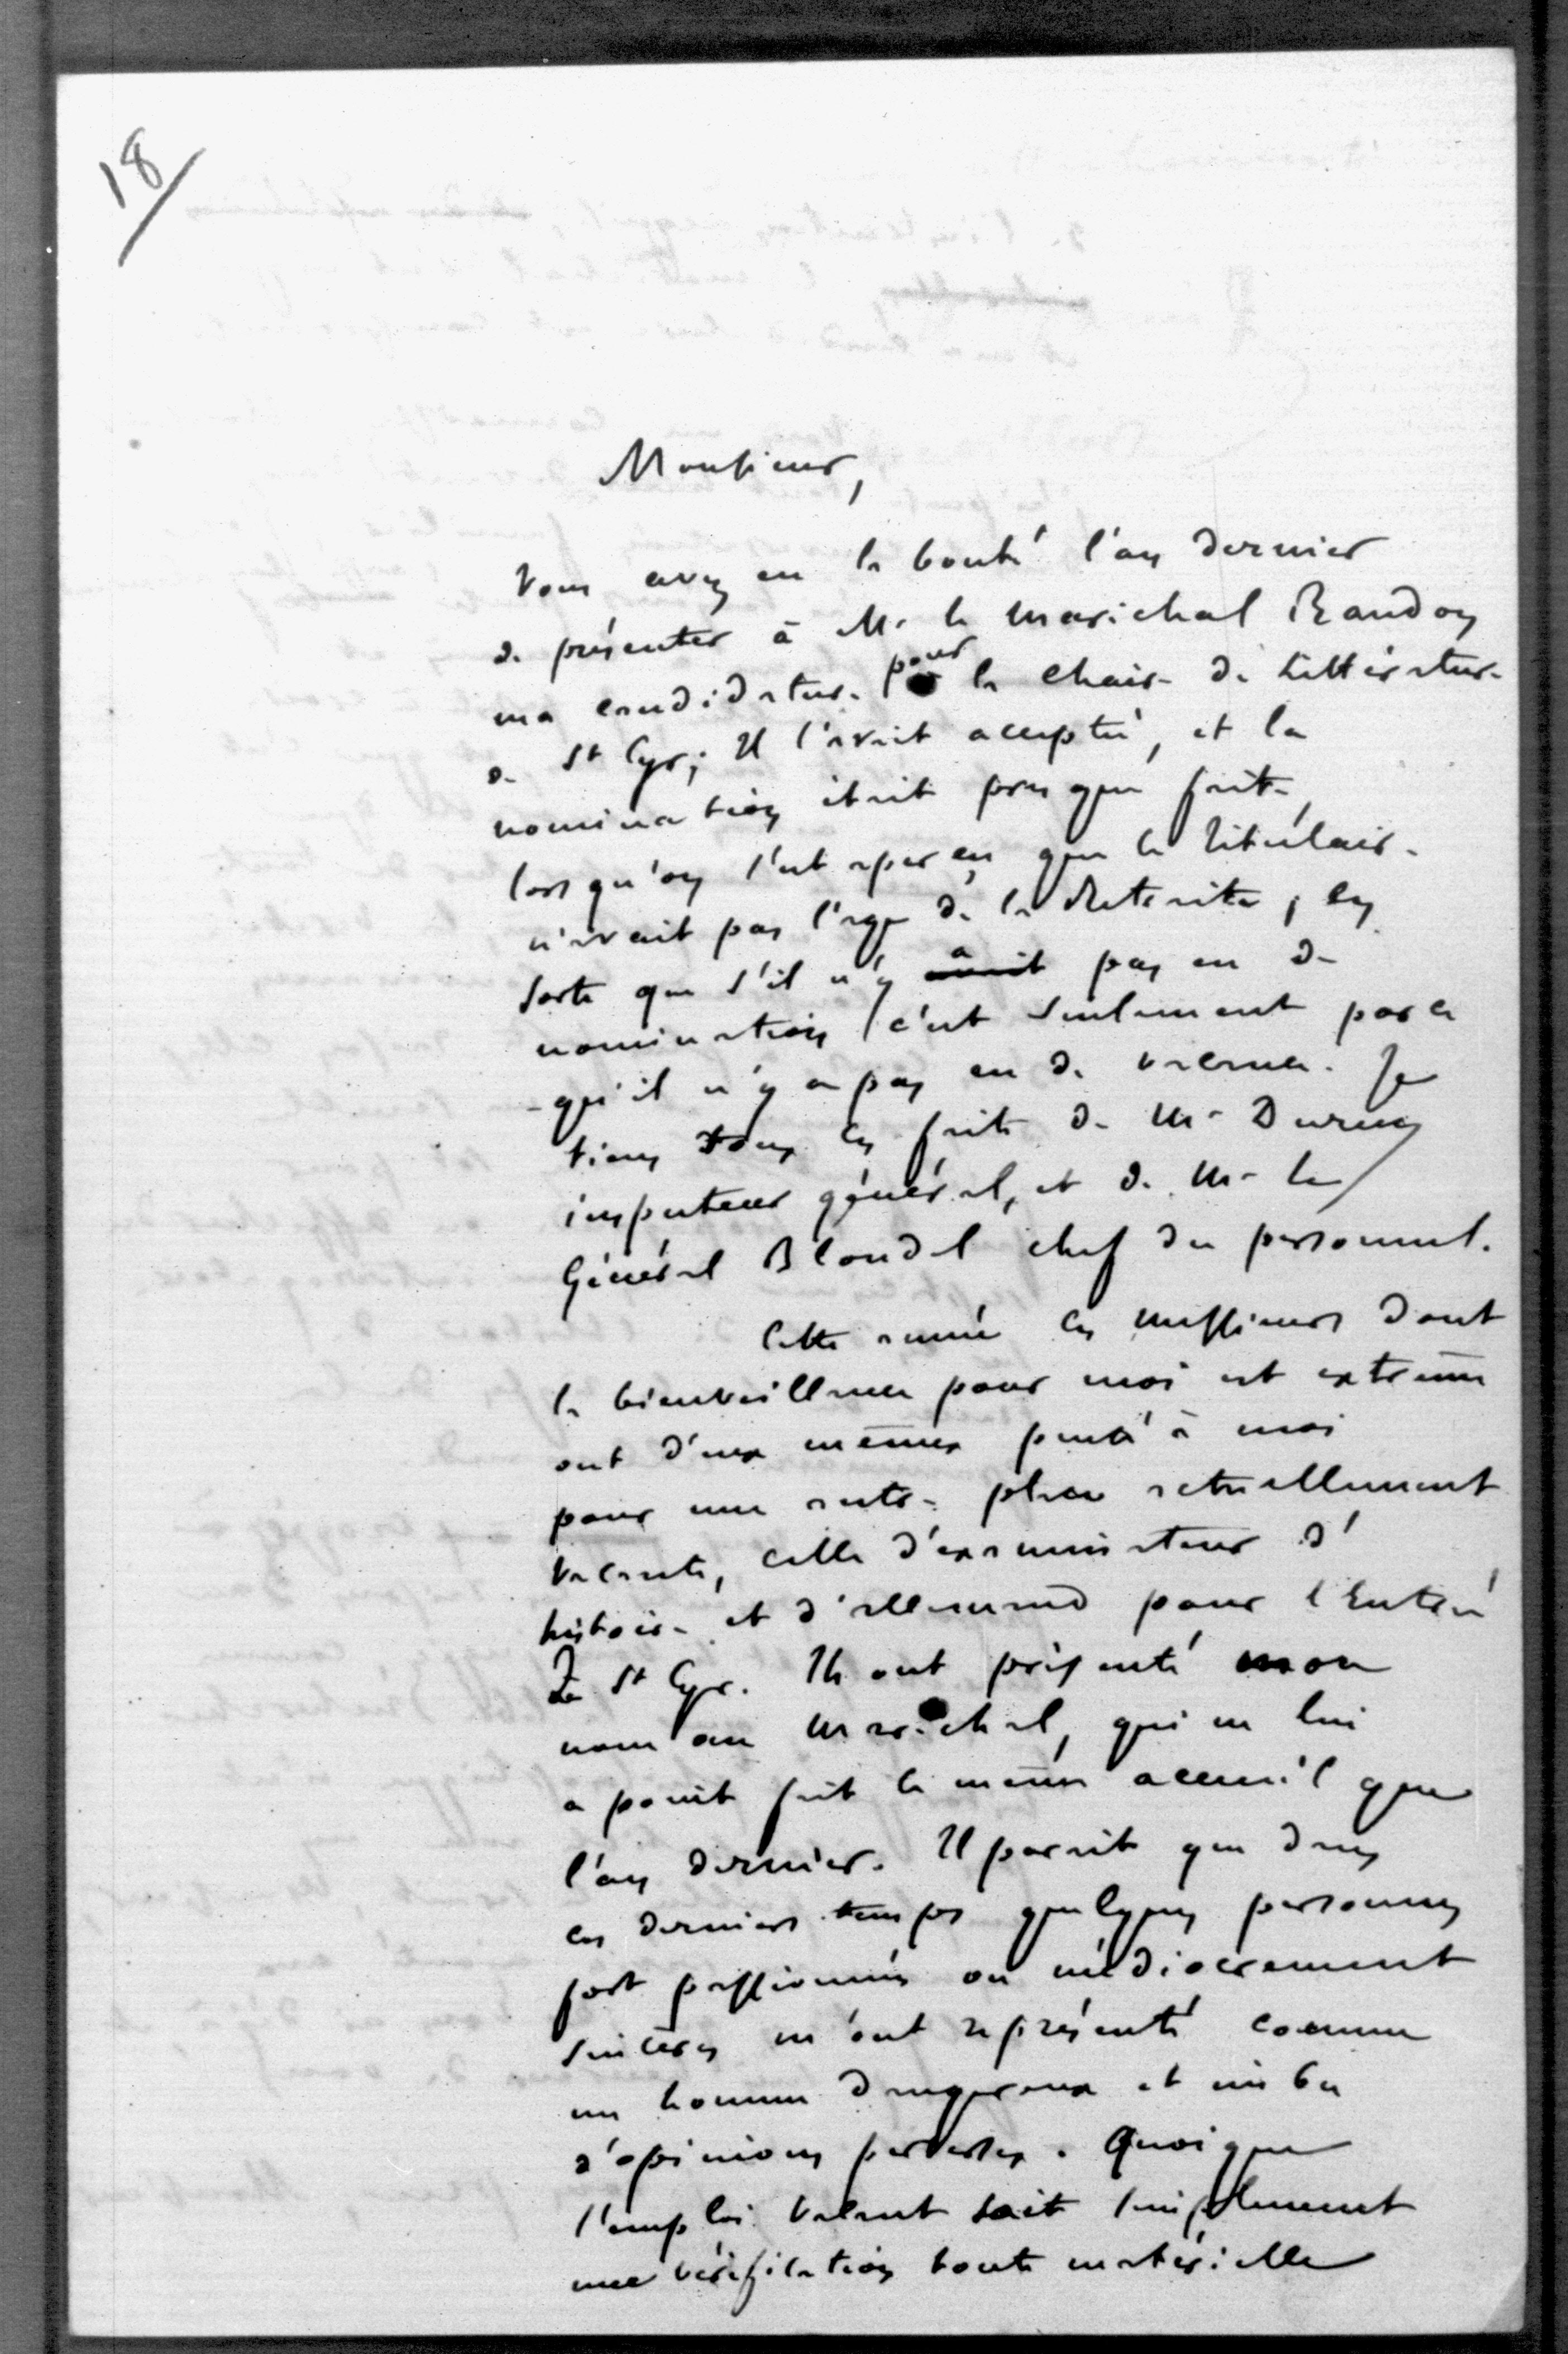 18
Monsieur,
Vous avez eu la bonté l'an dernier
de présenter à Mr le Maréchal Randon
ma candidature pour la chaire de Littérature
de St Cyr; Il l'avait acceptée, et la
nomination était presque faite,
lorsqu'on s'est aperçu que le titulaire
n'avait pas l'age de la Retraite, en
sorte que s'il n'y a pas eu de
nomination, c'est seulement parce
qu'il n'y a pas eu de vacance. Je
tiens tous ces faits de Mr Duruy
inspecteur général, et de Mr le
Général Blondel chef du personnel.
Cette année ces messieurs dont
la bienveillance pour moi est extrême
ont d'eux mêmes pensé à moi
pour une autre place actuellement
vacante, celle d'examinateur d'
histoire et d'allemand pour l'Entrée
de St Cyr. Ils ont présenté mon
nom au Maréchal, qui ne lui
a point fait le même accueil que
l'an dernier. Il parait que dans
ces derniers temps quelques personnes
fort passionnées ou médiocrement
sincères m'ont représenté comme
un homme dangereux et imbu
d'opinions perverses. Quoique
l'emploi vacant soit simplement
une vérification toute matérielle